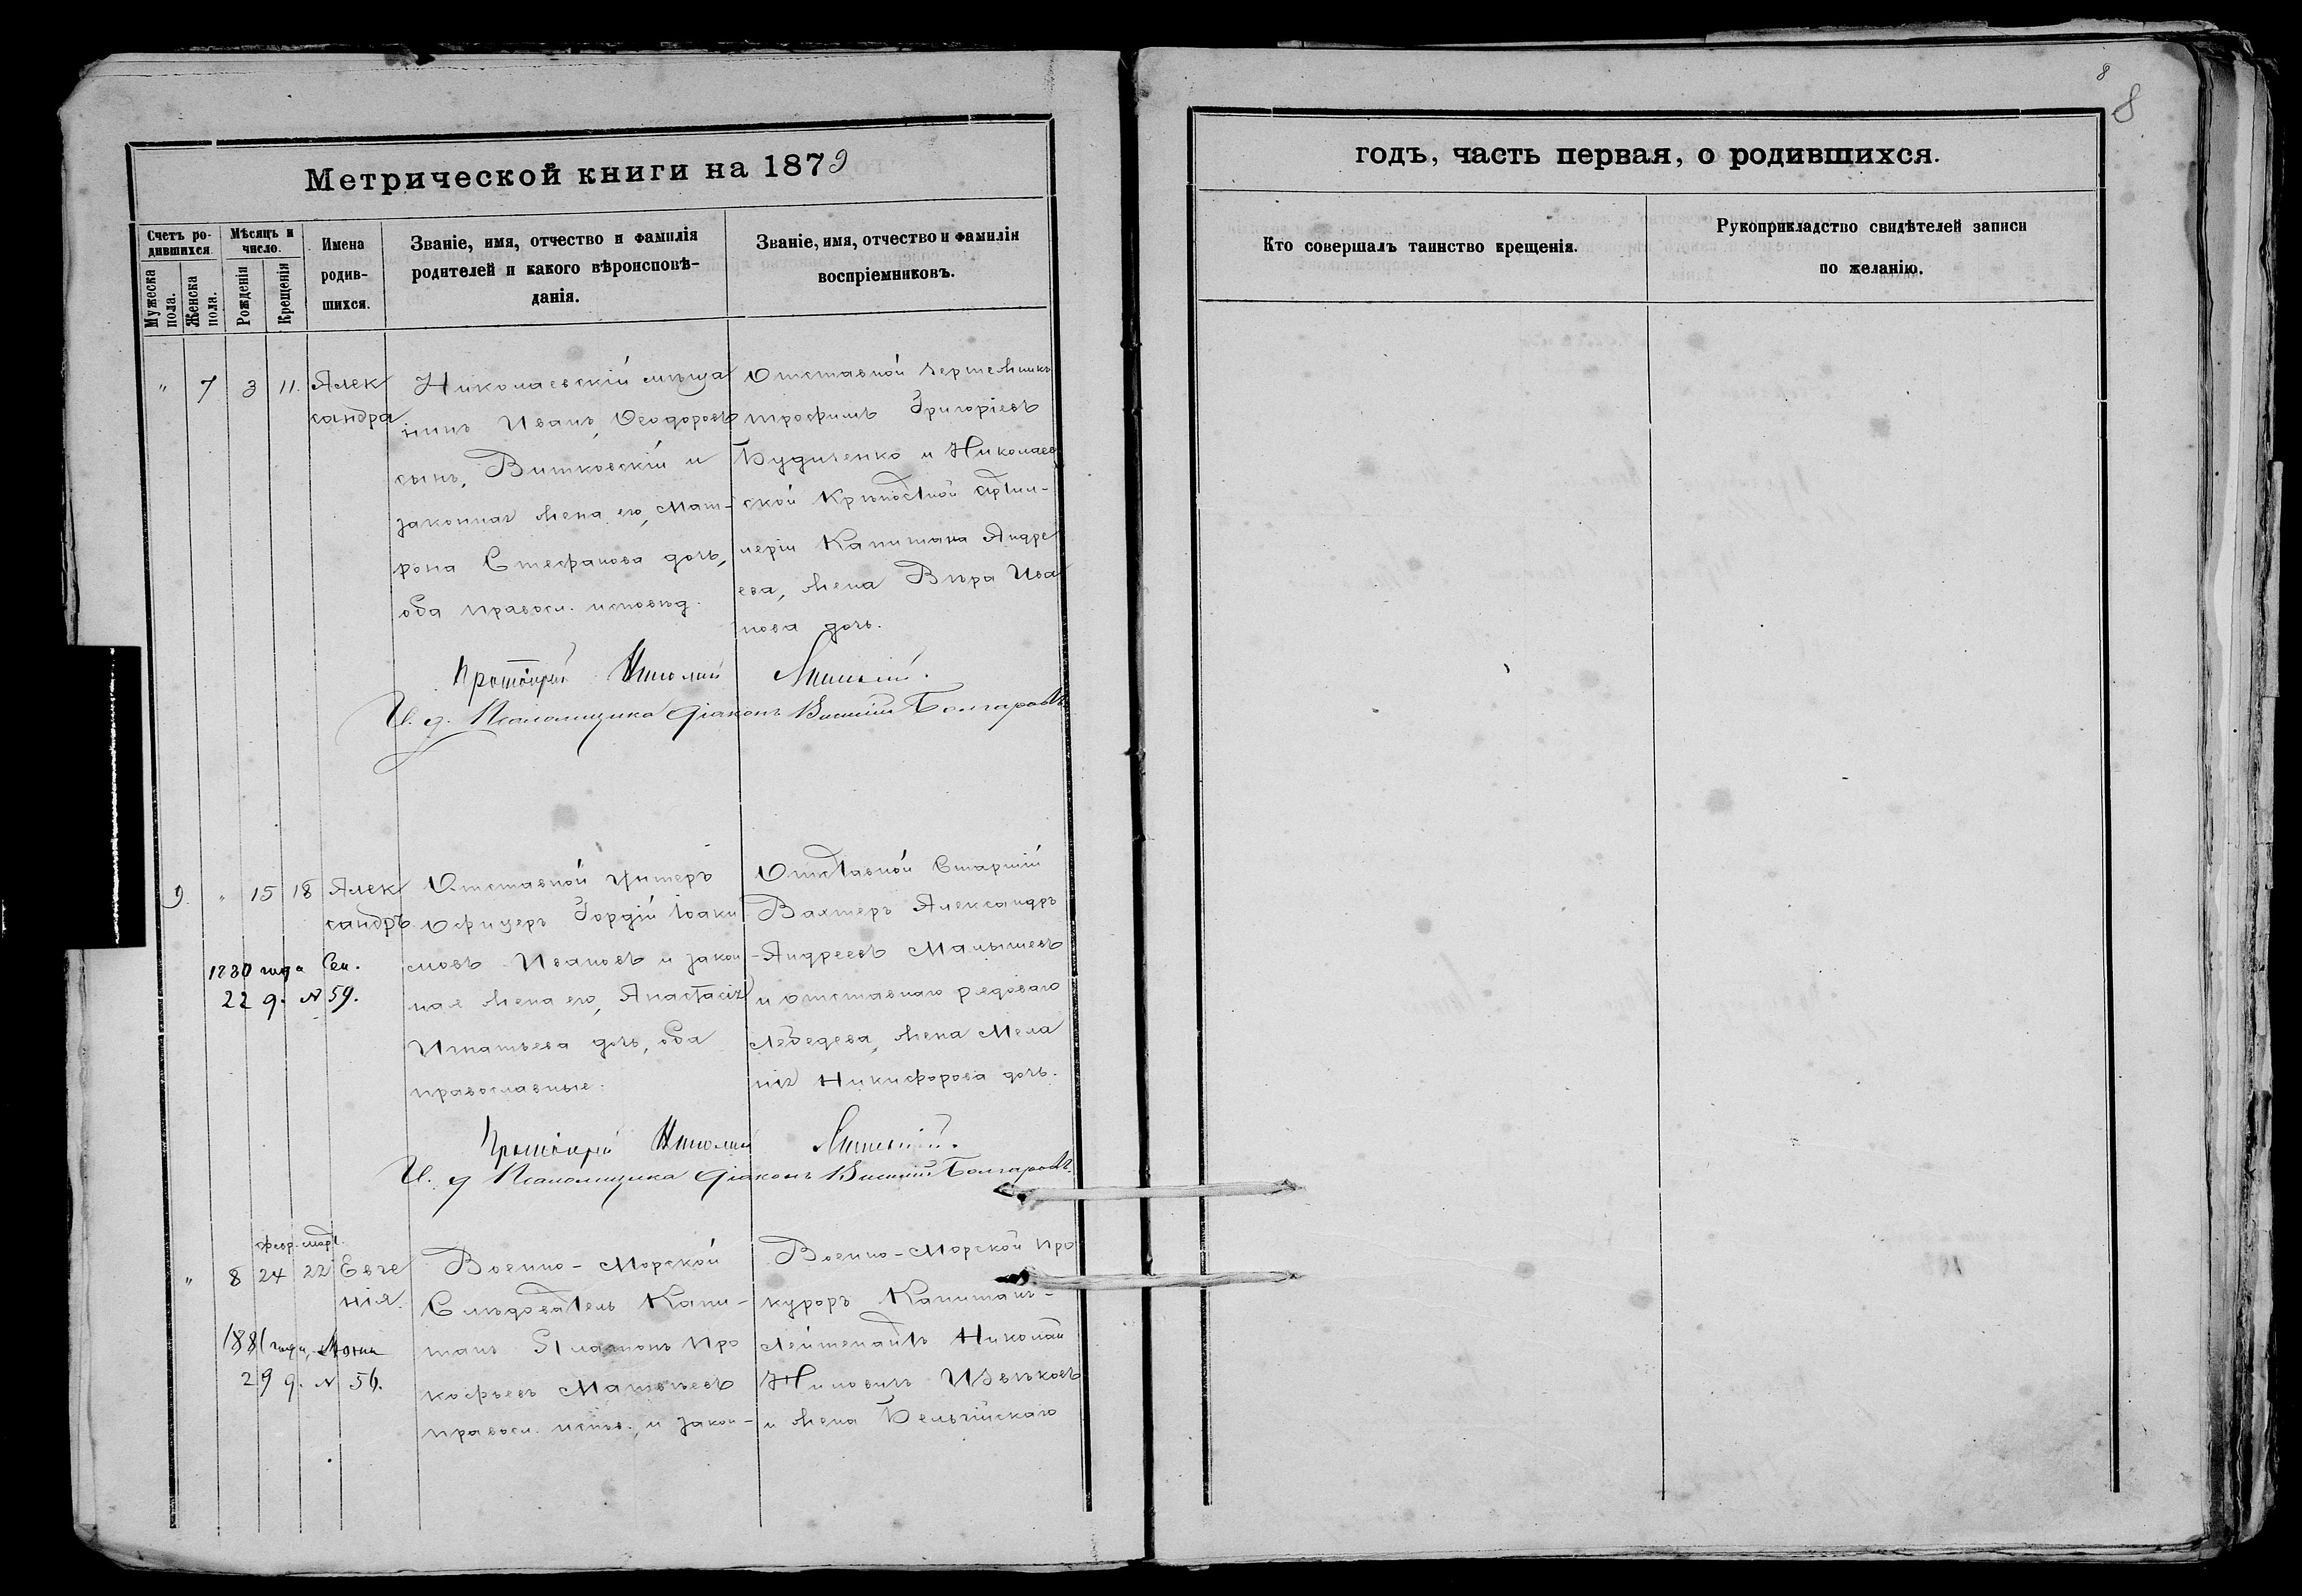 8
8
Метрической книги на 1879
годъ, часть первая, о родившихся.
Счетъ родившихся.
Мужеска пола.
Женска пола.
Мѣсяцъ и число.
Рожденія
Крещенія
Имена родившихся.
Званіе, имя, отчество и фамилія
родителей и какого вѣроисповѣ-
данія.
Званіе, имя, отчество и фамилія
воспріемниковъ.
Кто совершалъ таинство крещенія.
Рукоприкладство свидѣтелей записи
по желанію.
" 7 3 11. Алек
сандра
Николаевскій мѣща
нинъ Иванъ Ѳеодоровъ
сынъ, Витковскій и
законная жена его, Мат-
рона Стефанова дочь,
оба правосл. исповѣд.
Отставной чертежникъ
Трофимъ Григоріевъ
Будиченко и Николаев
ской Крѣпостной Артил-
леріи Капитана Андре
ева, жена Вѣра Ива
нова дочь.
Протоіерей
И. д. Псаломщика Діаконъ Василій Болгаровъ
9. " 15 18 Алек
сандръ
1880 года Сен.
22 д. № 59.
Отставной Унтеръ
Офицеръ Гордій Іоаки
мовъ Ивановъ и закон
ная жена его, Анастасія
Игнатьева дочь, оба
православные.
Отставной Старшій
Вахтеръ Александръ
Андреевъ Малышевъ
и отставнаго рядоваго
Лебедева, жена Мела
нія Никифорова дочь.
Протоіерей
И. д. Псаломщика Діаконъ Василій Болгаровъ
февр. март.
" 8 24 22 Евге
нія.
1881 года,
29 д. № 56.
Военно-Морской
Слѣдователь Капи-
танъ Платонъ Про
кофьевъ Матвѣевъ
правосл. испов., и закон-
Военно-Морской Про
куроръ Капитанъ-
Лейтенантъ Николай
Ниловичъ Извѣковъ
и жена Бельгійскаго